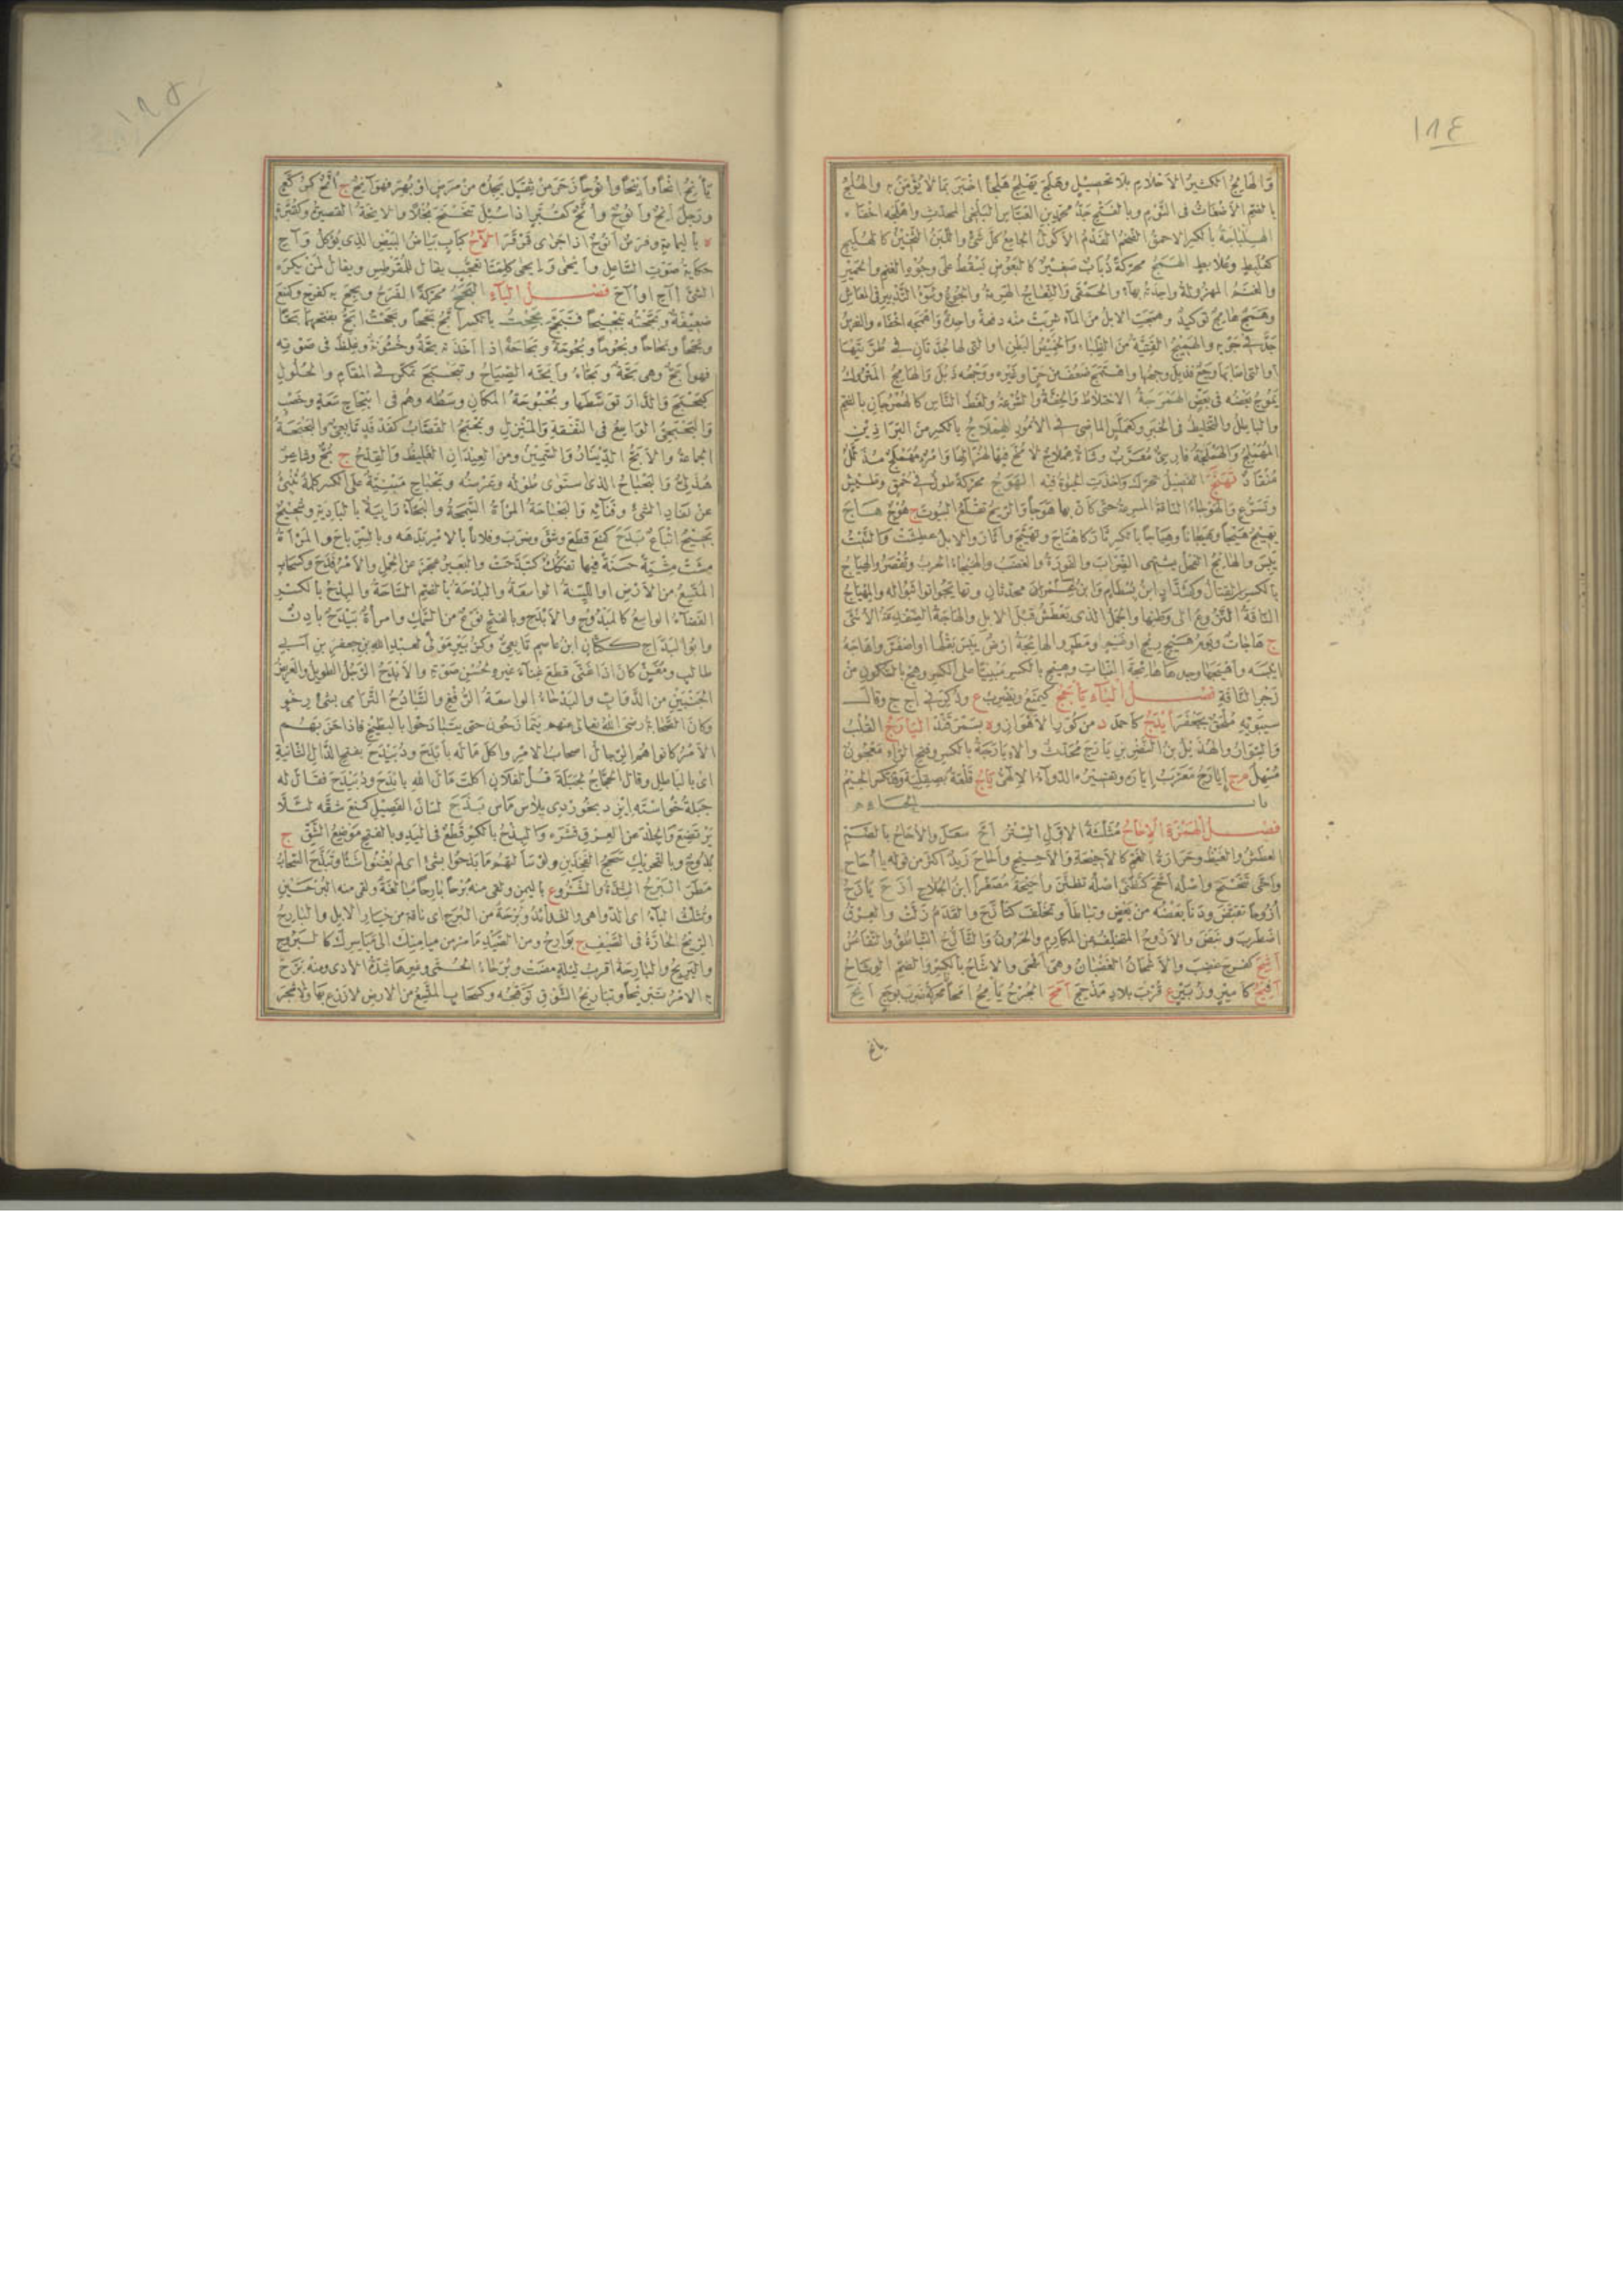 ١٨٤
وَالهَابِجُ الكثيرُ الأحلامِ بلا تحصيلٍ وهَلَجَ يَهْلِجُ هَلْجًا اخبَرَ بما لا يُؤْمَنُ به والهُلْجُ
بالضم الأضغاثُ فى النَّوْمِ وبالفتح جَدُّ محمدِ بنِ العبَّاسِ البَلْخِى المحدّثِ واهْلَجَه اخفاه
الهِلْباجَةُ بالكسر الاحمقُ الضخمُ الفَدْمُ الأَكُولُ الجامعُ كلَّ شرٍّ واللبنُ الثخينُ كالهُلَبِجِ
كعُلَبِطٍ وعُلابِطٍ الهَمَجُ محرّكةً ذُبابٌ صغيرٌ كالبعوضِ يَسْقُطُ على وجوهِ الغنمِ والحميرِ
والغنمُ المهزولةُ واحدتُه بهاءٍ والحَمْقَى والنِعاجُ الهَرِمَةُ والجُوعُ وسُوءُ التدبيرِ فى المعاشِ
وهَمَجٌ هامِجٌ توكيدٌ وهَمَجَتِ الابلُ من الماءِ شرِبَتْ منه دفعةً واحدةً واهْمَجَه اخفاه والفرسُ
جَدَّ فى جَرْيِه والهَمِيجُ الفَتِيَّةُ من الظباءِ والخَمِيصُ البطنِ او التى لها جُدَّتانِ فى طُرَّتَيْها
او التى اصابَها وجَعٌ فذَبَلَ وجهُها واهْتَمَجَ ضَعُفَ من حَرٍّ او غيرِه ووجهُه ذَبَلَ والهامِجُ المتروكُ
يَمُوجُ بعضُه فى بعضٍ الهَمْرَجَةُ الاختلاطُ والخِفَّةُ والسُّرْعَةُ ولَغَطُ الناسِ كالهُمْرُجانِ بالضم
والباطلُ والتخليطُ فى الخبرِ وكعَمَلَّسٍ الماضى فى الأمورِ الهِمْلاجُ بالكسر من البَراذِينِ
المُهَمْلِجُ والهَمْلَجَةُ فارسىٌّ مُعَرَّبٌ وشاةٌ هِمْلاجٌ لا مُخَّ فيها لهُزالِها وأمرٌ مُهَمْلَجٌ مُذَلَّلٌ
مُنْقادٌ تَهَنَّجَ الفَصِيلُ تَحَرَّكَ واخذَتِ الحيوةُ فيه الهَوَجُ محرّكةً طولٌ فى حُمْقٍ وطَيْشٍ
وتَسَرُّعٍ والهَوْجاءُ الناقةُ المسرعةُ حتى كأنّ بها هَوَجًا والريحُ تَقْلَعُ البيوتَ ج هُوجٌ هاجَ
يَهِيجُ هَيْجًا وهَيَجانًا وهِياجًا بالكسر ثارَ كاهْتاجَ وتَهَيَّجَ وأثارَ والابلُ عطِشَتْ والنبتُ
يَبِسَ والهائِجُ الفحلُ يشتهى الضِرابَ والفَوْرَةُ والغضبُ والهَيْجاءُ الحربُ وتُقْصَرُ والهِياجُ
بالكسر القتالُ وكشَدَّادٍ ابنُ بِسْطامٍ وابنُ عِمْرانَ محدّثانِ وتَهايَجُوا تواثَبُوا له والمِهْياجُ
الناقةُ النَّزُوعُ الى وطنِها والجملُ الذى يعطَشُ قبلَ الابلِ والهاجَةُ الضِّفْدِعَةُ الأنثى
ج هاجاتٌ ويومُ هَيْجٍ ريحٍ او غيمٍ ومطرٍ والهائِجَةُ ارضٌ يَبِسَ بقلُها او اصفَرَّ واهاجَه
ايبسه وأهْيَجَها وجدها هائِجَةَ النباتِ وهِيجِ بالكسر مبنيًّا على الكسر وهِجْ بالسكون من
زَجْرِ الناقةِ فصل الياء يَأْجَجُ كيمنَعُ ويضرِبُ ع وذُكِرَ فى أ ج ج وقال
سيبويه مُلْحَقٌ بجَعْفَرٍ أَيْذَجُ كأحمدَ د من كُوَرِ الأهوازِ و ة بسَمَرْقَنْدَ اليارَجُ القُلْبُ
والسِّوارُ والهُذَيْلُ بنُ النضرِ بنِ يارَجَ مُحَدِّثٌ والإيارَجَةُ بالكسر وفتح الراء معجونٌ
مُسْهِلٌ م ج إيارَجٌ مُعَرَّبُ إيارَه وتفسيرُه الدواءُ الإلهىُّ ياجُ قلعةٌ بصِقِلِّيَةَ وقد تُكسَر الجيمُ
باب الحاء
فصل الهمزة الإجاحُ مُثَلَّثَةَ الاوّلِ السِّتْرُ أَحَّ سعل والأُحاحُ بالضم
العطشُ والغيظُ وحَزازَةُ الغَمِّ كالأحيحةِ والأَحِيحِ وأحاحَ زيدٌ اكثرَ من قولِه يا أُحاحُ
وأَحَّى تَنَحْنَحَ واصلُه أَحَّحَ كتَظَنَّى اصلُه تَظَنَّنَ وأُحَيْحَةُ مُصَغَّرًا ابنُ الجُلاحِ أَزَحَ يَأْزِحُ
أُزُوحًا تقبَّضَ ودنا بعضُه من بعضٍ وتباطأَ وتخلَّفَ كتَأَزَّحَ والقدمُ زلَّتْ والعِرْقُ
اضطربَ ونبضَ والأَزُوحُ المتخلِّفُ من المكارمِ والحَرُونُ والتَّأَزُّحُ التباطُؤُ والتقاعُسُ
أَشِحَ كفرِحَ غضِبَ والأَشْحانُ الغضبانُ وهى أَشْحَى والإشاحُ بالكسر والضم الوِشاحُ
أفِيحٌ كأميرٍ وزُبَيْرٍ ع قربَ بلادِ مَذْحِجٍ أَمَحَ الجُرْحُ يَأْمِحُ أَمَحانًا محركةً ضرب بوجعٍ أَنَحَ
يانح
١٨٥
يَأْنِحُ أَنْحًا وأَنِيحًا وأُنُوحًا زَحَرَ من ثِقَلٍ يجده من مرضٍ او بُهْرٍ فهو آنِحٌ ج أُنَّحٌ كرُكَّعٍ
ورجلٌ آنِحٌ وأَنُوحٌ وأُنَّحٌ كقُبَّرٍ اذا سُئِلَ تنحنحَ بُخلًا والآنِحَةُ القصيرةُ وكقُبَّرَةٍ
ة باليمامةِ وفرسٌ أَنُوحٌ اذا جرى فَرْقَرَ الآحُ كبابٍ بياضُ البيضِ الذى يُؤْكَلُ وآحِ
حكايةُ صوتِ الساعلِ وأَيْحَى وإِيحَى كلمتا تعجّبٍ يقال للمُقَرْطِسِ ويقال لمن يكره
الشئَ آحِ او آحَ فصل الباء البَجَحُ محرّكةً الفرحُ وبجِحَ به كفرِحَ وكمنَعَ
ضعيفةٌ وبَجَّحْتُه تبجيحًا فتَبَجَّحَ بَحِحْتُ بالكسر أَبَحُّ بَحَحًا وبَحَحْتُ أَبَحُّ بفتحهما بَحًّا
وبَحَحًا وبَحاحًا وبُحُوحًا وبُحُوحَةً وبَحاحَةً اذا اخذته بُحَّةٌ وخُشونةٌ وغِلَظٌ فى صوتِه
فهو أَبَحُّ وهى بَحَّةٌ وبَحَّاءُ وأَبَحَّه الصِياحُ وتَبَحْبَحَ تمكّنَ فى المقامِ والحُلُولِ
كبَحْبَحَ والدارَ توسّطَها وبُحْبُوحَةُ المكانِ وسطُه وهُم فى ابتِحاحٍ سَعَةٍ وخِصْبٍ
والبَحْبَحِىُّ الواسِعُ فى النفقةِ والمنزلِ وبَحْبَحٌ القصّابُ كفَدْفَدٍ تابعىٌّ والبَحْبَحَةُ
الجماعةُ والأَبَحُّ الدينارُ والسمينُ ومن العِيدانِ الغليظُ والقِدْحُ ج بُحٌّ وشاعرٌ
هُذَلِىٌّ والبَحْباحُ الذى استوى طولُه وعرضُه وبَحْباحِ مبنيةً على الكسر كلمةٌ تُنْبِئُ
عن نفادِ الشئِ وفنائِه والبَحْباحَةُ المرأةُ السَّمِجَةُ والبَحّاءُ رابِيَةٌ بالباديةِ وشَحِيحٌ
بَحِيحٌ إتباعٌ بَدَحَ كمنَعَ قطعَ وشقَّ وضربَ وفلانًا بالأمرِ بدهَه وبالسِّرِّ باحَ والمرأةُ
مشَتْ مِشْيَةً حسنةً فيها تفكُّكٌ كتَبَدَّحَتْ والبعيرُ عجزَ عن الحِملِ والأمرُ فدَحَ وكسَحابٍ
المُتَّسِعُ من الأرضِ او اللَّيِّنَةُ الواسعةُ والبُدْحَةُ بالضم الساحةُ والبِدْحُ بالكسر
الفضاءُ الواسعُ كالمبدوحِ والأَبْدَحِ وبالفتح نوعٌ من السمكِ وامرأةٌ بَيْدَحٌ بادِنٌ
وابو البَدَّاحِ ككَتّانٍ ابنُ عاصمٍ تابعىٌّ وكزُبَيْرٍ مولًى لعبدِ اللهِ بنِ جعفرِ بنِ ابى
طالبٍ ومُغَنٍّ كان اذا غنَّى قطعَ غناءَ غيرِه لحُسنِ صوتِه والأَبْدَحُ الرجلُ الطويلُ والعريضُ
الجنبَيْنِ من الدوابِّ والبَدْحاءُ الواسعةُ الرُّفْغِ والتَّبادُحُ الترامى بشئٍ رِخْوٍ
وكان الصحابةُ رضى الله تعالى عنهم يَتَمازَحُونَ حتى يتبادَحُوا بالبِطِّيخِ فاذا حزَبَهُم
الأمرُ كانوا هُم الرجالَ اصحابَ الأمرِ واكلَ مالَه بأَبْدَحَ ودُبَيْدَحَ بفتح الدالِ الثانيةِ
اى بالباطلِ وقال الحجّاجُ لجَبَلَةَ قُلْ لفلانٍ أكلتَ مالَ اللهِ بأَبْدَحَ ودُبَيْدَحَ فقال له
جَبَلَةُ خُواسْتَه إيزد بخُورْدِى بلاش ماش بَذَحَ لسانَ الفصيلِ كمنَعَ شقَّه لئلّا
يرتضِعَ والجلدَ عن العِرْقِ قشرَه والبِذْحُ بالكسر قَطْعٌ فى اليدِ وبالفتح موضِعُ الشَّقِّ ج
بُذُوحٌ وبالتحريكِ سَحَجُ الفخذَيْنِ ولو سألتَهم ما بَذَحُوا بشئٍ اى لم يُغْنُوا شيئًا وتَبَذَّحَ السحابُ
مطَرَ البَرْحُ الشِّدَّةُ والشَّرُّ و ع باليمنِ ولقى منه بَرْحًا بارحًا مبالغةٌ ولقى منه البُرَحِينَ
وتُثَلَّثُ الباءُ اى الدواهى والشدائدَ وبُرْحَةٌ من البُرَحِ اى ناقةٌ من خيارِ الابلِ والبارِحُ
الريحُ الحارَّةُ فى الصيفِ ج بوارِحُ ومن الصيدِ ما مرَّ من ميامِنِك الى مياسِرِك كالبَرُوحِ
والبَرِيحِ والبارِحَةُ اقربُ ليلةٍ مضَتْ وبُرَحاءُ الحُمَّى وغيرِها شِدَّةُ الأذى ومنه بَرَّحَ
به الأمرُ تبريحًا وتباريحُ الشوقِ توهُّجُه وكسَحابٍ المُتَّسِعُ من الارضِ لا زرعَ بها ولا شجرَ